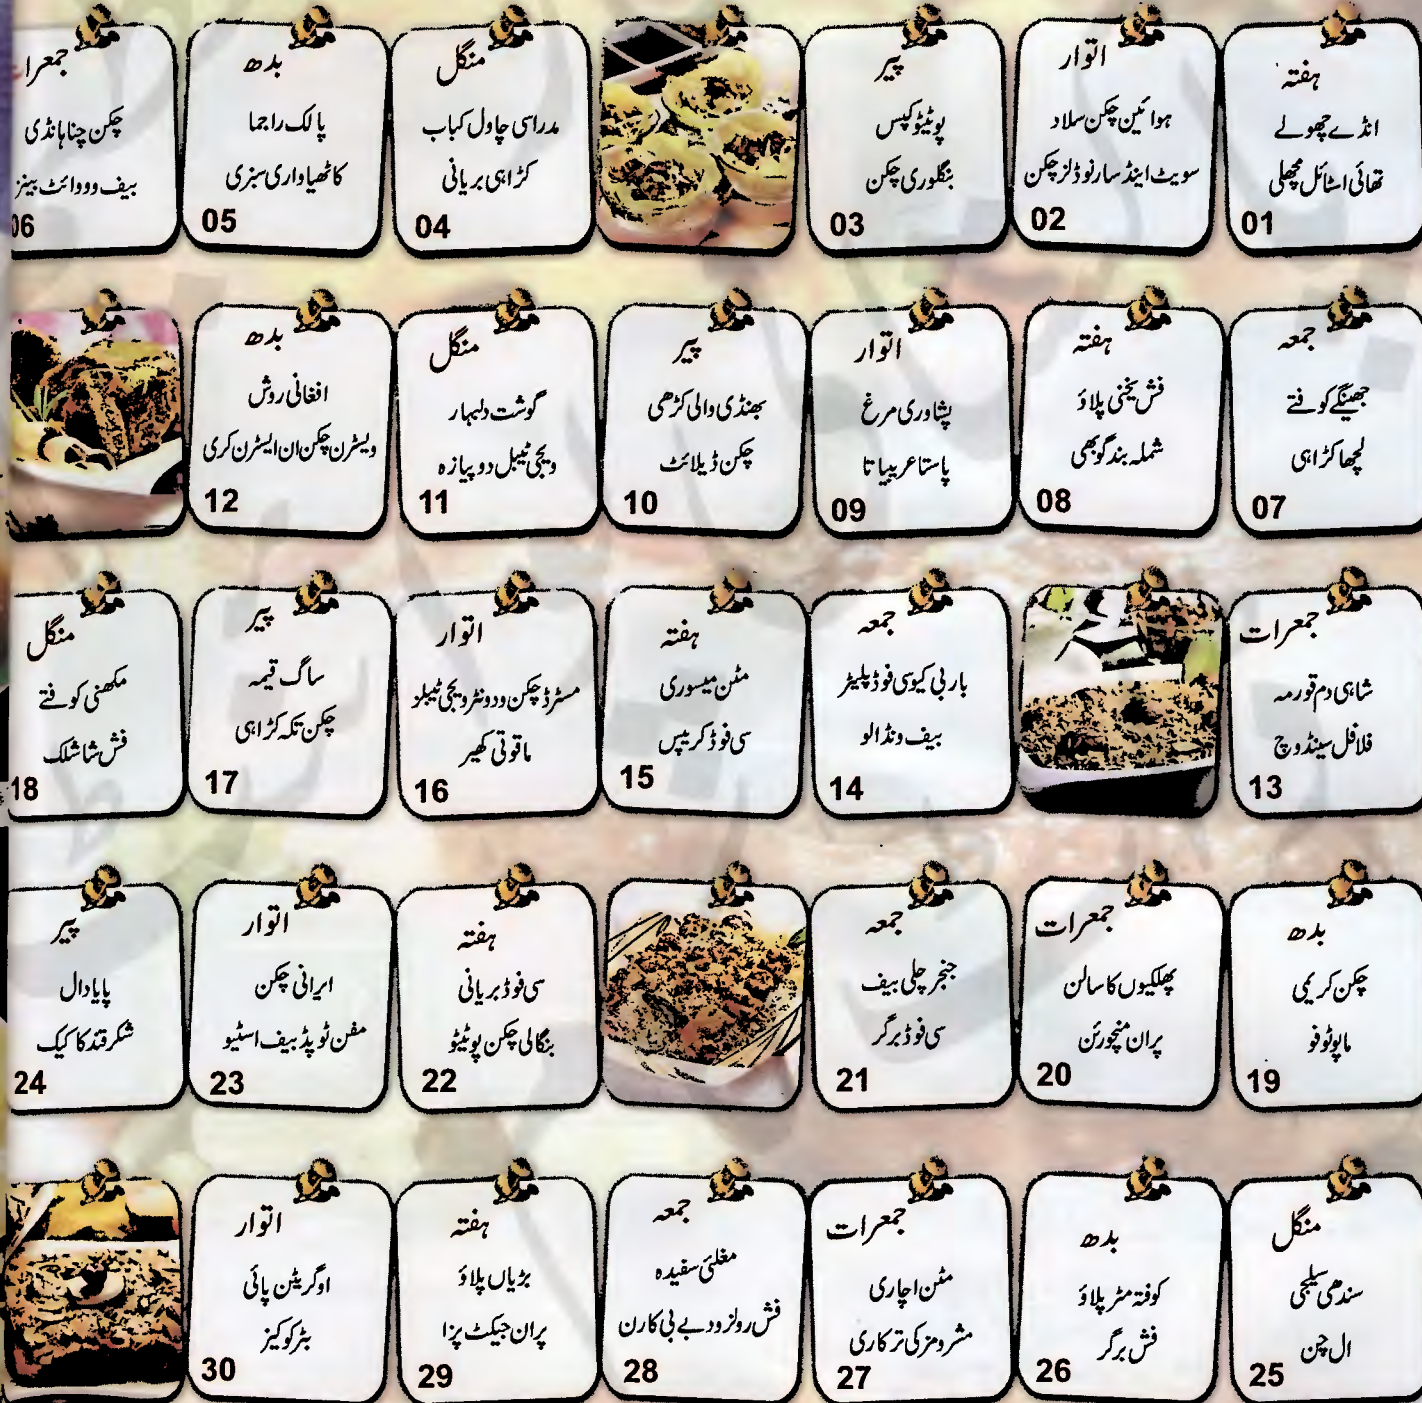 ہفتہ
انڈے چھولے
تھائی اسٹائل مچھلی
01
اتوار
ہوائین چکن سلاد
سویٹ اینڈ سار نوڈلز چکن
02
پیر
پوٹیٹو کپس
بنگلوری چکن
03
منگل
مدراسی چاول کباب
کڑاہی بریانی
04
بدھ
پالک راجما
کاٹھیاواری سبزی
05
جمعرا
چکن چنا ہانڈی
بیف ود وائٹ بینز
06
جمعہ
جھینگے کوفتے
لچھا کڑاہی
07
ہفتہ
فش یخنی پلاؤ
شملہ بند گوبھی
08
اتوار
پشاوری مرغ
پاستا عربیاتا
09
پیر
بھنڈی والی کڑھی
چکن ڈیلائٹ
10
منگل
گوشت دلبہار
ویجی ٹیبل دوپیازہ
11
بدھ
افغانی روش
ویسٹرن چکن ان ایسٹرن کری
12
جمعرات
شاہی دم قورمہ
فلافل سینڈوچ
13
جمعہ
باربی کیو سی فوڈ پلیٹر
بیف ونڈالو
14
ہفتہ
مٹن میسوری
سی فوڈ کریپس
15
اتوار
مسٹرڈ چکن ود ونٹر ویجی ٹیبلز
ماقوتی کھیر
16
پیر
ساگ قیمہ
چکن تکہ کڑاہی
17
منگل
مکھنی کوفتے
فش شاشلک
18
بدھ
چکن کریمی
ماپو ٹوفو
19
جمعرات
پھلکیوں کا سالن
پران منچورئن
20
جمعہ
جنجر چلی بیف
سی فوڈ برگر
21
ہفتہ
سی فوڈ بریانی
بنگالی چکن پوٹیٹو
22
اتوار
ایرانی چکن
مفن ٹوپڈ بیف اسٹیو
23
پیر
پایا دال
شکرقند کا کیک
24
منگل
سندھی سیلجی
ال چن
25
بدھ
کوفتہ مٹر پلاؤ
فش برگر
26
جمعرات
مٹن اچاری
مشرومز کی ترکاری
27
جمعہ
مغلئی سفیدہ
فش رولز ود بے بی کارن
28
ہفتہ
بڑیاں پلاؤ
پران جیکٹ پزا
29
اتوار
اوگریٹن پائی
بٹر کوکیز
30